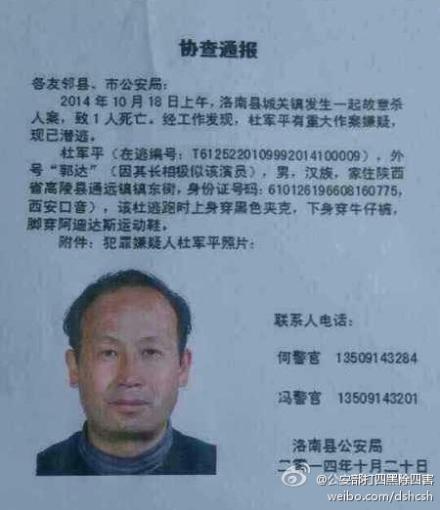 协查通报
各友邻县、市公安局：
2014年10月18日上午，洛南县城关镇发生一起故意杀
人案，致1人死亡。经工作发现，杜军平有重大作案嫌疑，
现已潜逃。
杜军平（在逃编号：T6125220109992014100009），外
号“郭达”（因其长相极似该演员），男，汉族，家住陕西
省高陵县通远镇镇东街，身份证号码：610126196608160775，
西安口音），该杜逃跑时上身穿黑色夹克，下身穿牛仔裤，
脚穿阿迪达斯运动鞋。
附件：犯罪嫌疑人杜军平照片：
联系人电话：
何警官 13509143284
冯警官 13509143201
洛南县公安局
二零一四年十月二十日
@公安部打四黑除四害
weibo.com/dshcsh